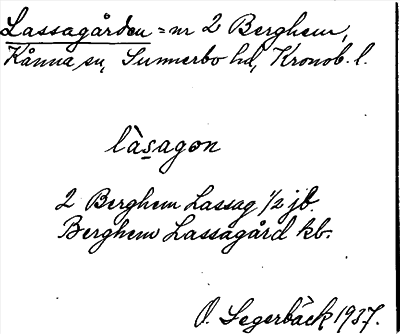 Lassagården = nr 2 Berghem,
Kånna sn, Sunnerbo hd, Kronob. l.
làsagon
2 Berghem Lassag 1/2 jb.
Berghem Lassagård kb.
O. Segerbäck 1937.